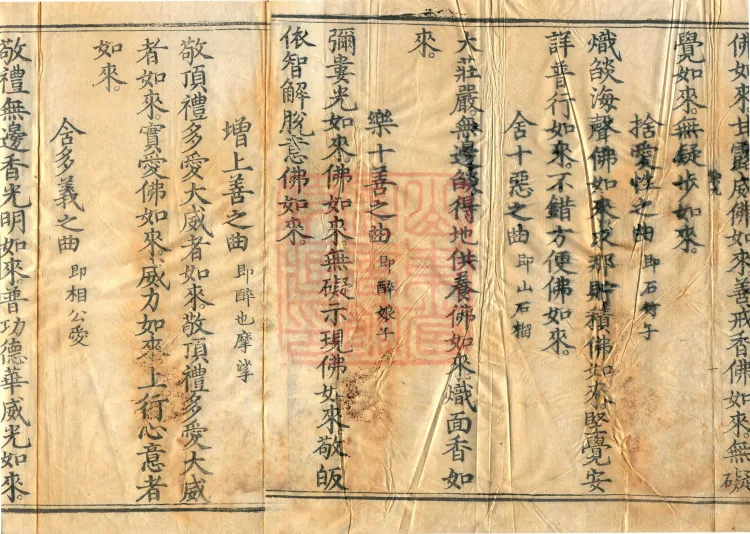 佛如來士靈威佛如來善戒香佛如來無礙
覺如來。無疑步如來。
捨愛性之曲 即石竹子
熾燄海聲佛如來求那貯積佛如來堅覺安
詳普行如來。不錯方便佛如來。
舍十惡之曲 即山石榴
大莊嚴無邊
得地供養佛如來熾面香如
來。
樂十善之曲 即醉娘子
彌婁光如來佛如來無礙示現佛如來敬皈
依智解脫意佛如來。
增上善之曲 即醉也摩挲
敬頂禮多愛大威者如來敬頂禮多愛大威
者如來。實愛佛如來。威力如來上行心意者
如來。
含多義之曲 即相公愛
敬禮無邊香光明如來。普功德華威光如來。